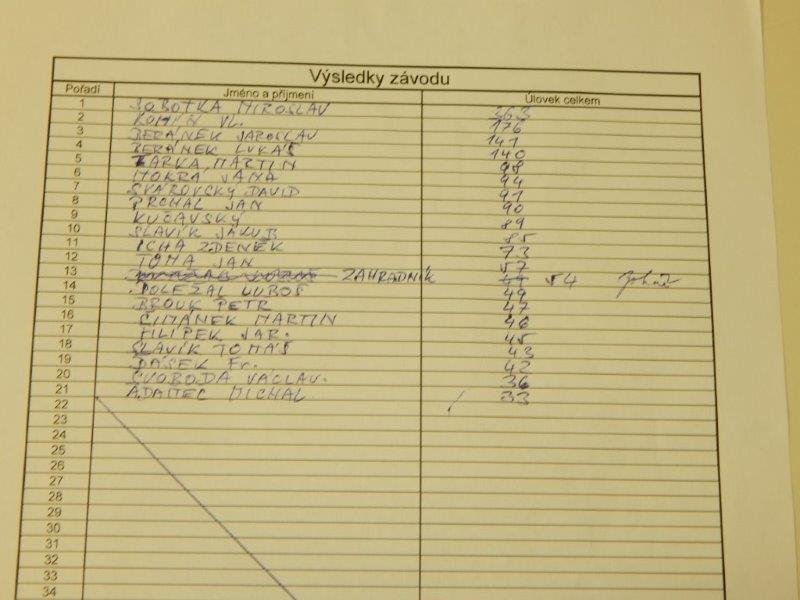 Výsledky závodu
Pořadí Jméno a příjmení Úlovek celkem
1 SOBOTKA MIROSLAV 263
2 KOMÍN VL. 176
3 BERÁNEK JAROSLAV 141
4 BERÁNEK LUKÁŠ 140
5 MARTIN 98
6 MOKRÁ JANA 94
7 SVAROVSKÝ DAVID 91
8 PROHAL JAN 90
9 KUČAVSKÝ 89
10 SLAVÍK JAKUB 85
11 PCHA ZDENĚK 73
12 TOMA JAN 57
13 ZAHRADNÍK 54
14 DOLEŽAL LUBOŠ 49
15 BROUK PETR 47
16 ŠIMÁNEK MARTIN 46
17 FILÍPEK JAR. 45
18 SLAVÍK TOMÁŠ 43
19 DÁSEK Fr. 42
20 SVOBODA VÁCLAV. 36
21 ADAMEC MICHAL 33
22
23
24
25
26
27
28
29
30
31
32
33
34